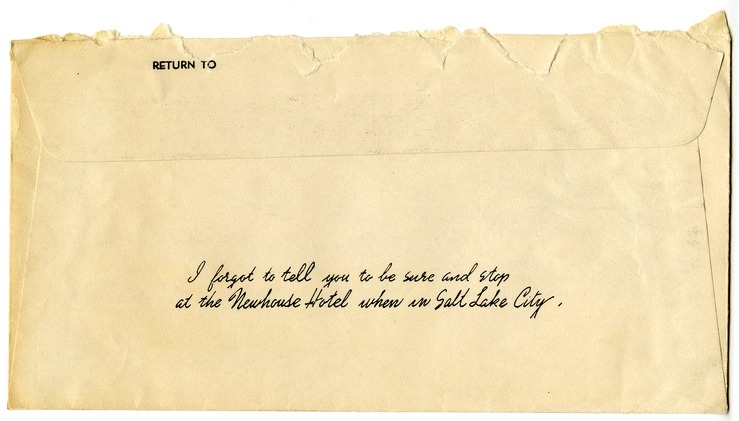 RETURN TO
I forgot to tell you to be sure and stop
at the Newhouse Hotel when in Salt Lake City.